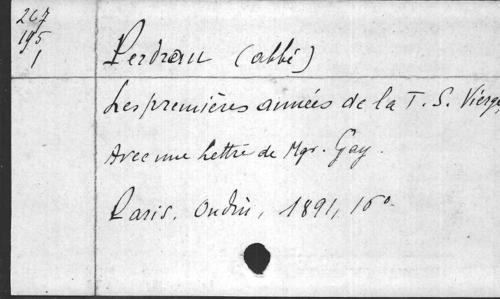 267
195
1
Perdrau (abbé)
Les premières années de la T. S. Vierge,
Avec une Lettre de Mgr. Gay.
Paris, Oudin, 1891, 16º.